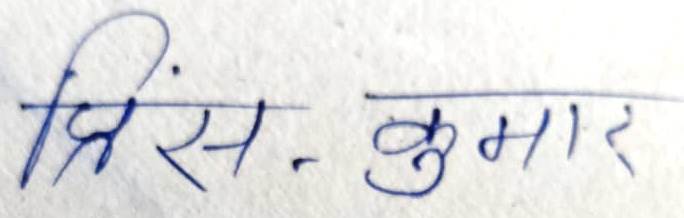 प्रिंस. कुमार